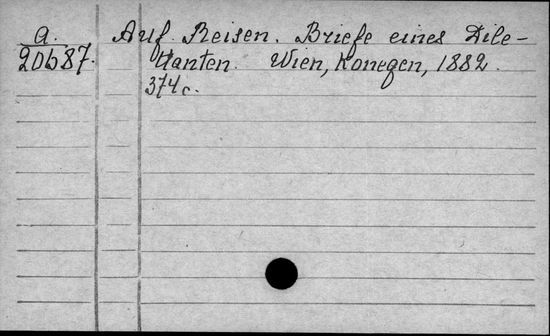 A. Auf Reisen. Briefe eines Dile-
20687. ttanten. Wien, Konegen, 1882.
374 c.